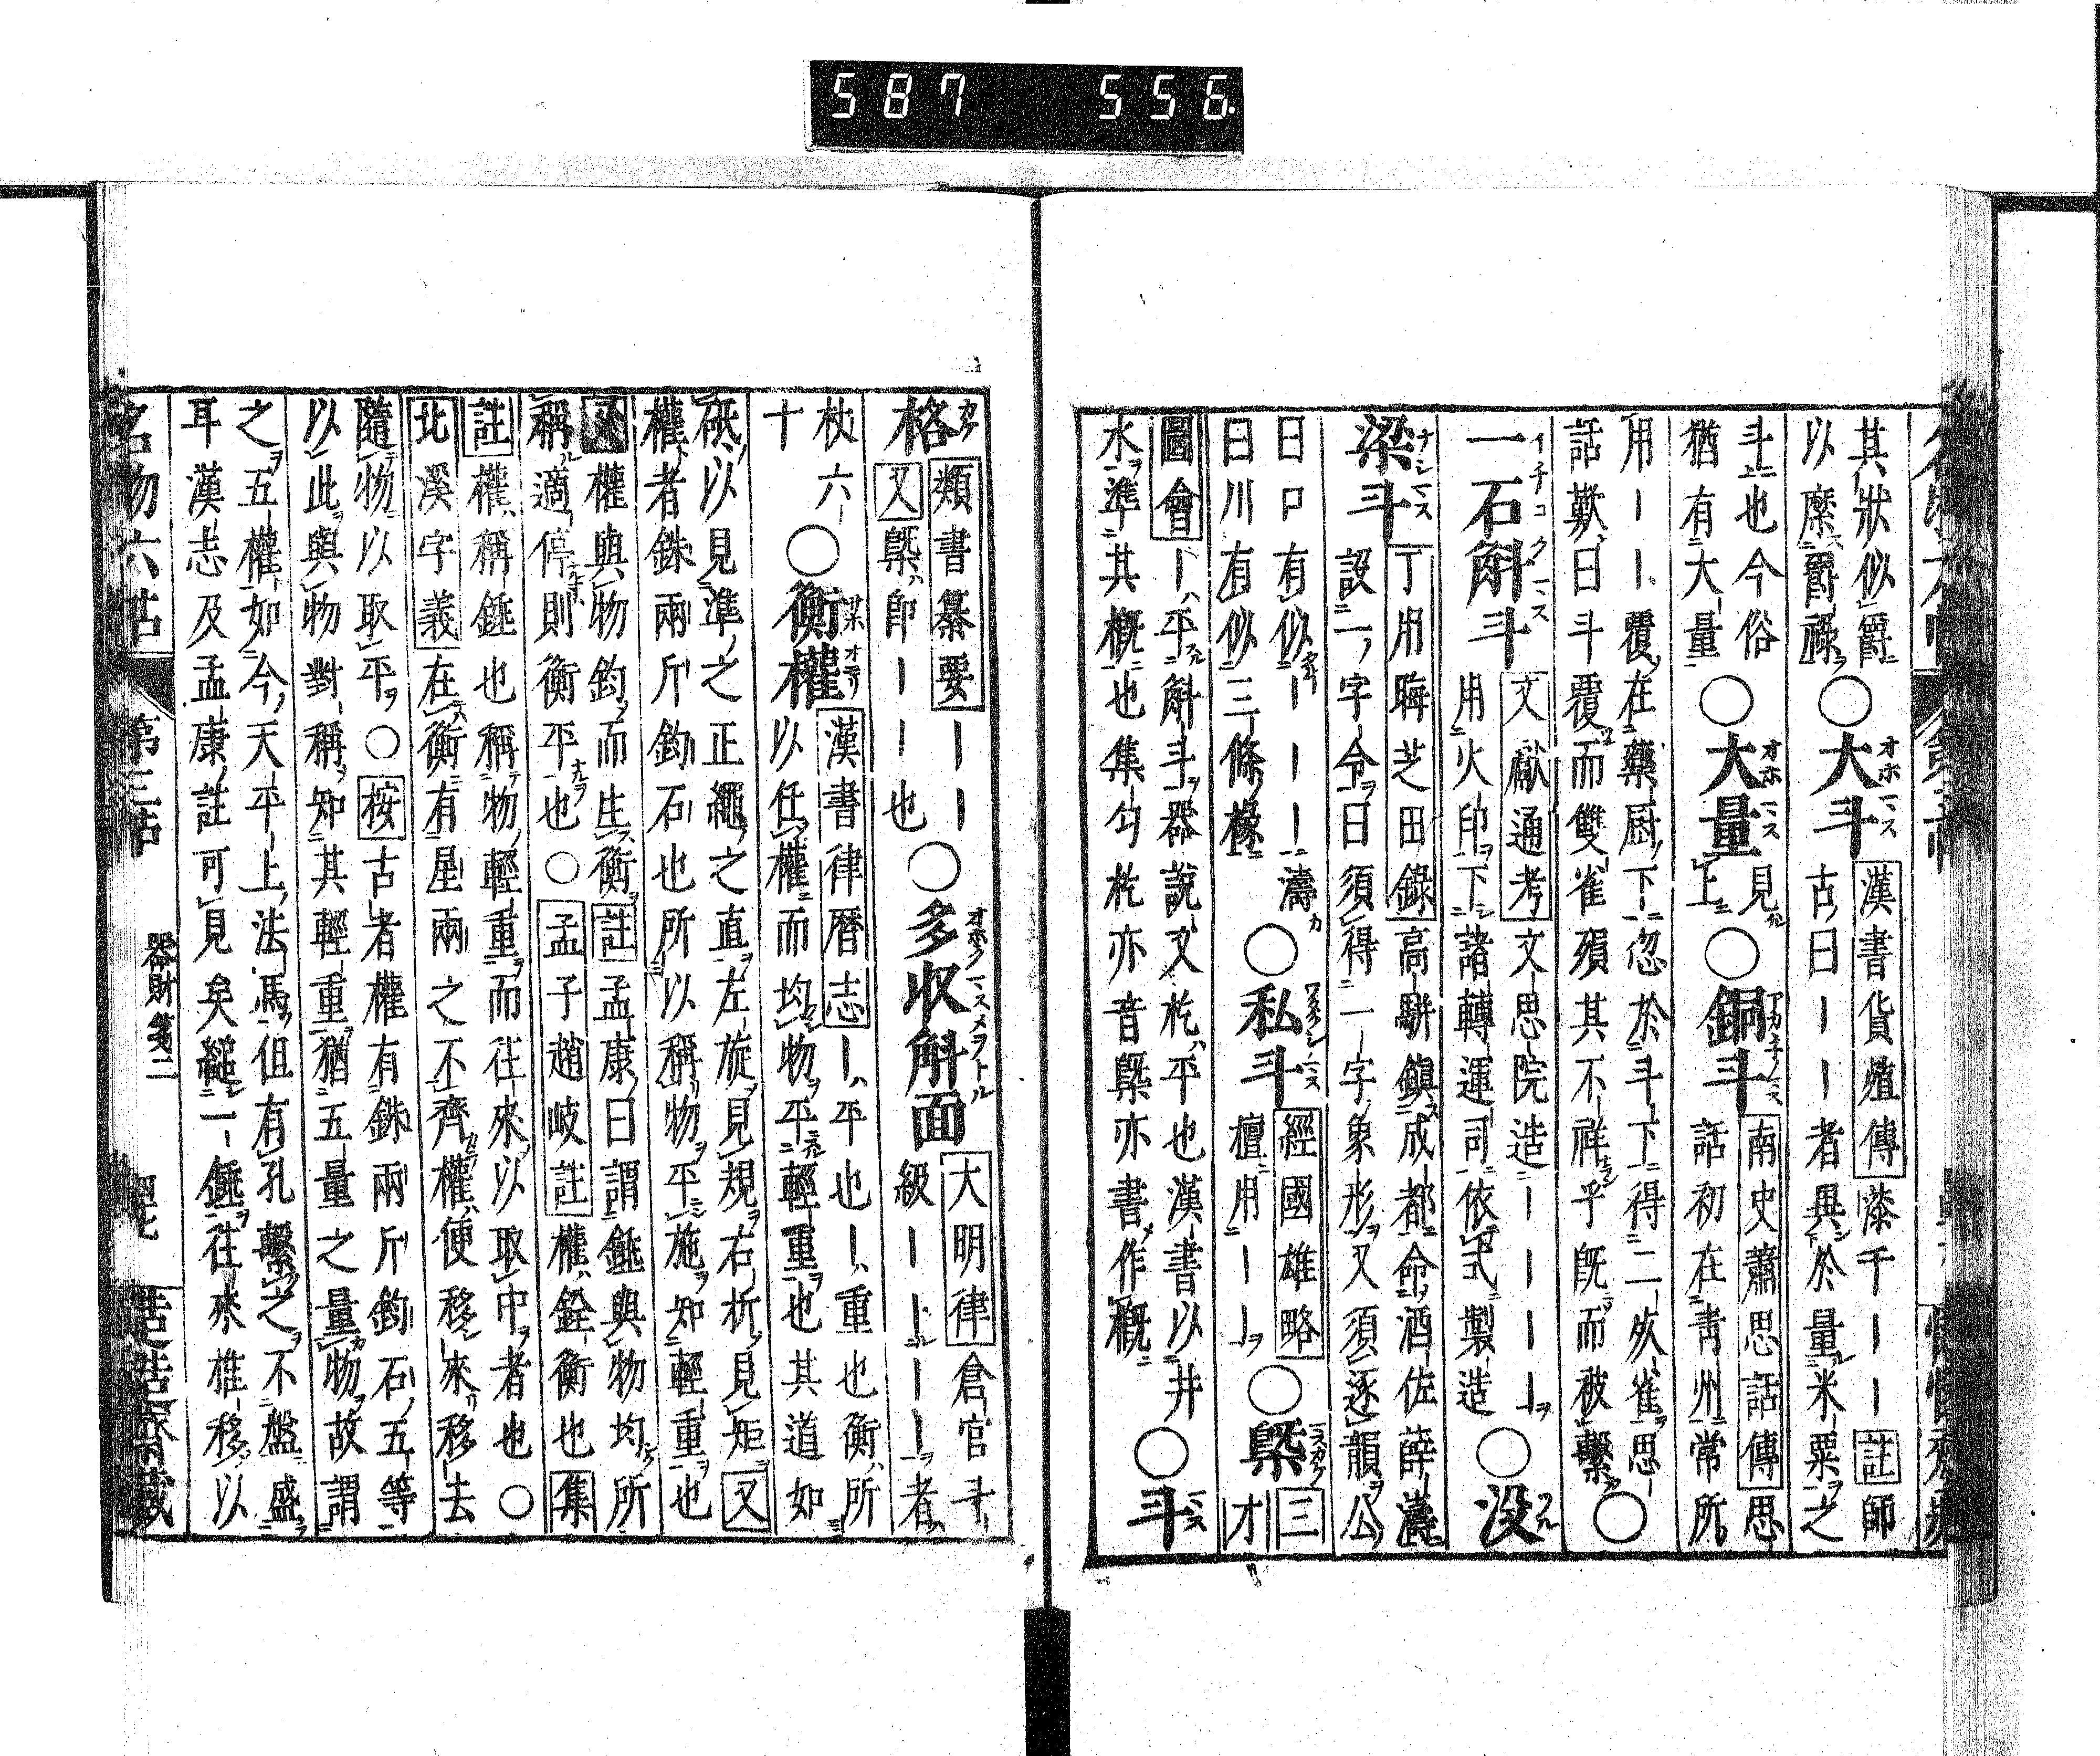 587 556
其狀似爵
以縻爵祿
○大斗
漢書貨殖傳漆千｜｜註師
古曰｜｜者異於量米粟之
斗也今俗
猶有大量
○大量
見
上
○銅斗
南史蕭思話傳思
話初在靑州常所
用｜｜覆在藥厨下忽於斗下得二死雀思
話歎曰斗覆而雙雀殞其不祥乎旣而被繫○
一石斛斗
文獻通考文思院造｜｜｜｜
用火印下諸轉運司依式製造
○没
梁斗
丁用晦芝田錄高騈鎭成都命酒佐薛濤
設一字令曰須得一字象形又須逐韻公
曰口有似｜｜｜濤
曰川有似三條椽
○私斗
經國雄略
檀用｜｜
○槩
三
才
圖會｜平斛斗器說文杚平也漢書以井
水準其概也集勻杚亦音槩亦書作概
○斗
格
類書纂要｜｜
又槩卽｜｜也
○多收斛面
大明律倉官斗
級｜｜｜｜者
杖六
十
○衡權
漢書律曆志｜平也｜重也衡所
以任權而均物平輕重也其道如
砥以見準之正繩之直左旋見規右折見矩又
權者銖兩斤鈞石也所以稱物平施知輕重也
又權與物鈞而生衡註孟康曰謂錘與物均所
稱適停則衡平也○孟子趙岐註權銓衡也集
註權稱錘也稱物輕重而往來以取中者也○
北溪字義在衡有星兩之不齊權便移來移去
隨物以取平○按古者權有銖兩斤鈞石五等
以此與物對稱知其輕重猶五量之量物故謂
之五權如今天平上法馬但有孔繫之不盤盛
耳漢志及孟康註可見矣縋一錘往來推移以
名物六帖
第三帖
器財箋二